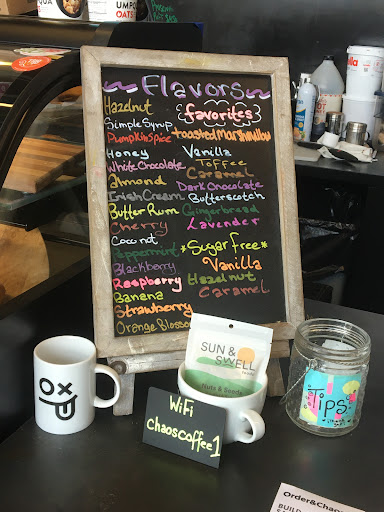 Flavors
Hazelnut
Simple Syrup
Pumpkin Spice
Honey
White Chocolate
almond
Irish Cream
Butter Rum
Cherry
Coconut
peppermint
Blackberry
Raspberry
Banana
Strawberry
Orange Blossom
favorites
toasted Marshmallow
Vanilla
Toffee
Caramel
Dark Chocolate
Butterscotch
Gingerbread
Lavender
*Sugar free*
Vanilla
Hazelnut
Caramel
SUN &
SWELL
Nuts & Seeds
WiFi
chaoscoffee1
Tips
Order&Chao
BUILD